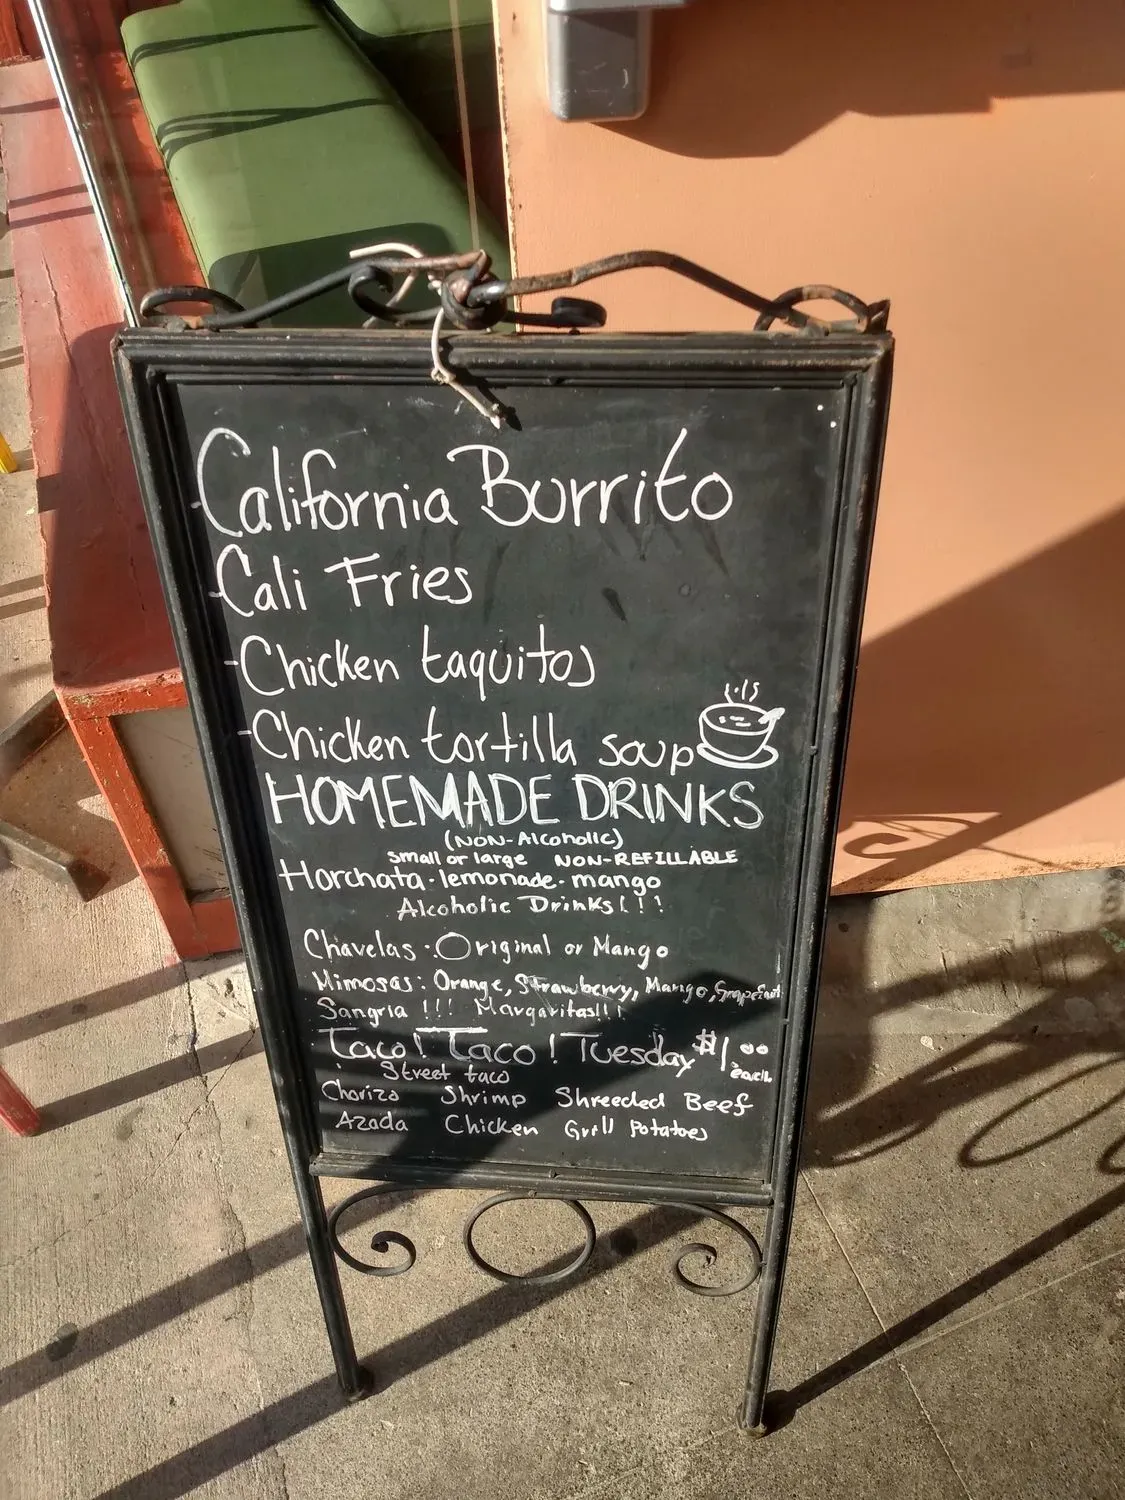 -California Burrito
-Cali Fries
-Chicken taquitos
-Chicken tortilla soup
HOMEMADE DRINKS
(NON-Alcoholic)
small or large NON-REFILLABLE
Horchata·lemonade·mango
Alcoholic Drinks!!!
Chavelas·Original or Mango
Mimosas: Orange, Strawberry, Mango, Grapefruit
Sangria !!! Margaritas!!!
Taco! Taco! Tuesday $1.00 each
Street taco
Chorizo Shrimp Shreeded Beef
Azada Chicken Grill Potatoes